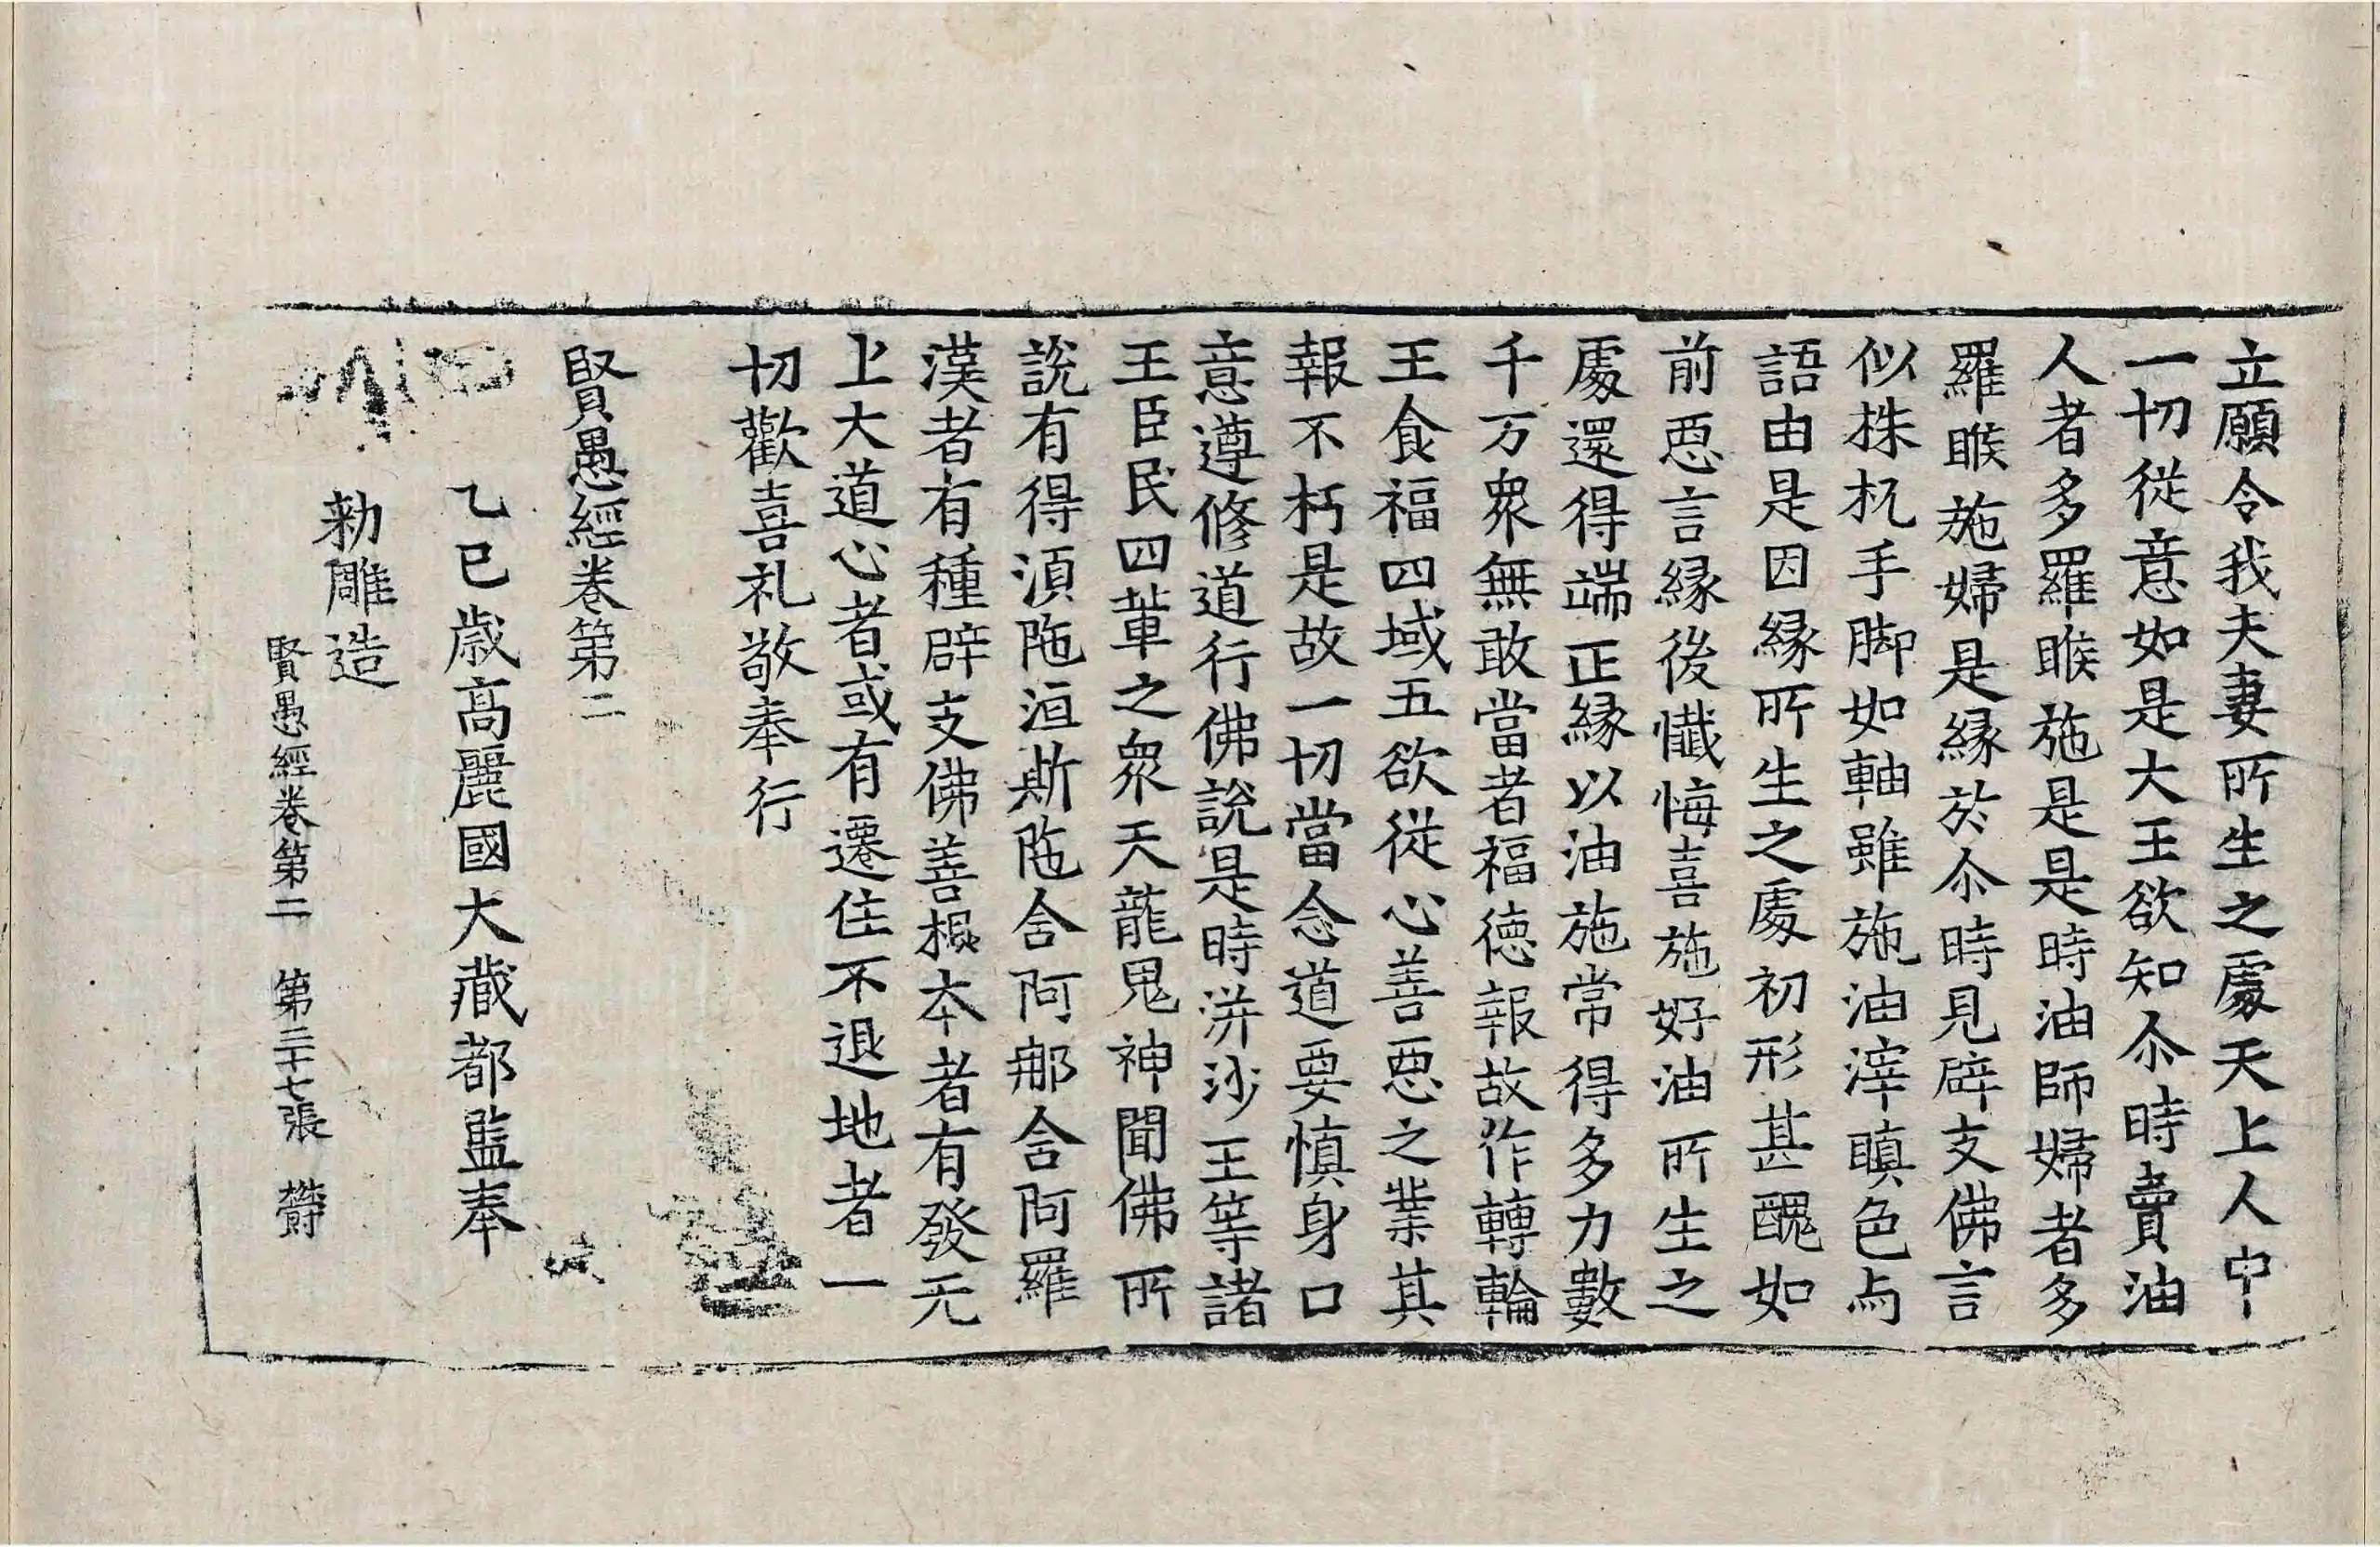 立願令我夫妻所生之處天上人中
一切從意如是大王欲知尒時賣油
人者多羅睺施是是時油師婦者多
羅睺施婦是緣於尒時見辟支佛言
似株杌手脚如軸雖施油滓瞋色与
語由是因緣所生之處初形甚醜如
前惡言緣後懺悔喜施好油所生之
處還得端正緣以油施常得多力數
千万衆無敢當者福德報故作轉輪
王食福四域五欲從心善惡之業其
報不朽是故一切當念道要愼身口
意遵修道行佛說是時洴沙王等諸
王臣民四軰之衆天龍鬼神聞佛所
說有得湏陁洹斯陁含阿那含阿羅
漢者有種辟支佛善根夲者有發无
上大道心者或有遷住不退地者一
切歡喜礼敬奉行
賢愚經卷第二
乙巳歲高麗國大藏都監奉
勅雕造
賢愚經卷第二 第三十七張